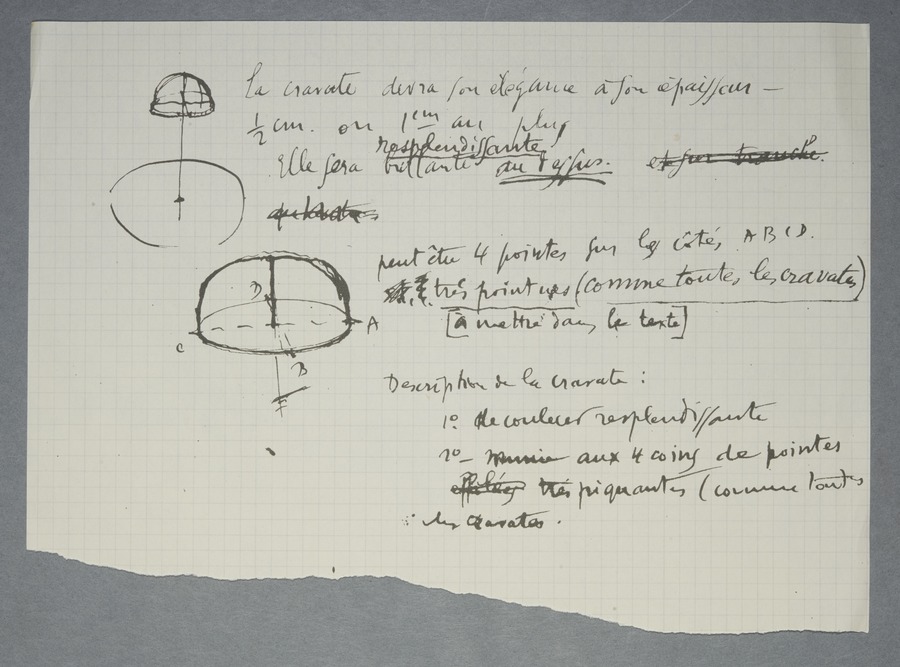 La cravate devra son élégance à son épaisseur —
½ cm. ou 1cm au plus
resplendissante
Elle sera brillante au dessus. et sur tranche.
peut être 4 pointes sur les côtés ABCD.
très pointues (comme toutes les cravates)
[à mettre dans le texte]
D
A
C
B
F
Description de la cravate :
1º de couleur resplendissante
2º — munie aux 4 coins de pointes
effilées très piquantes (comme toutes
les cravates.